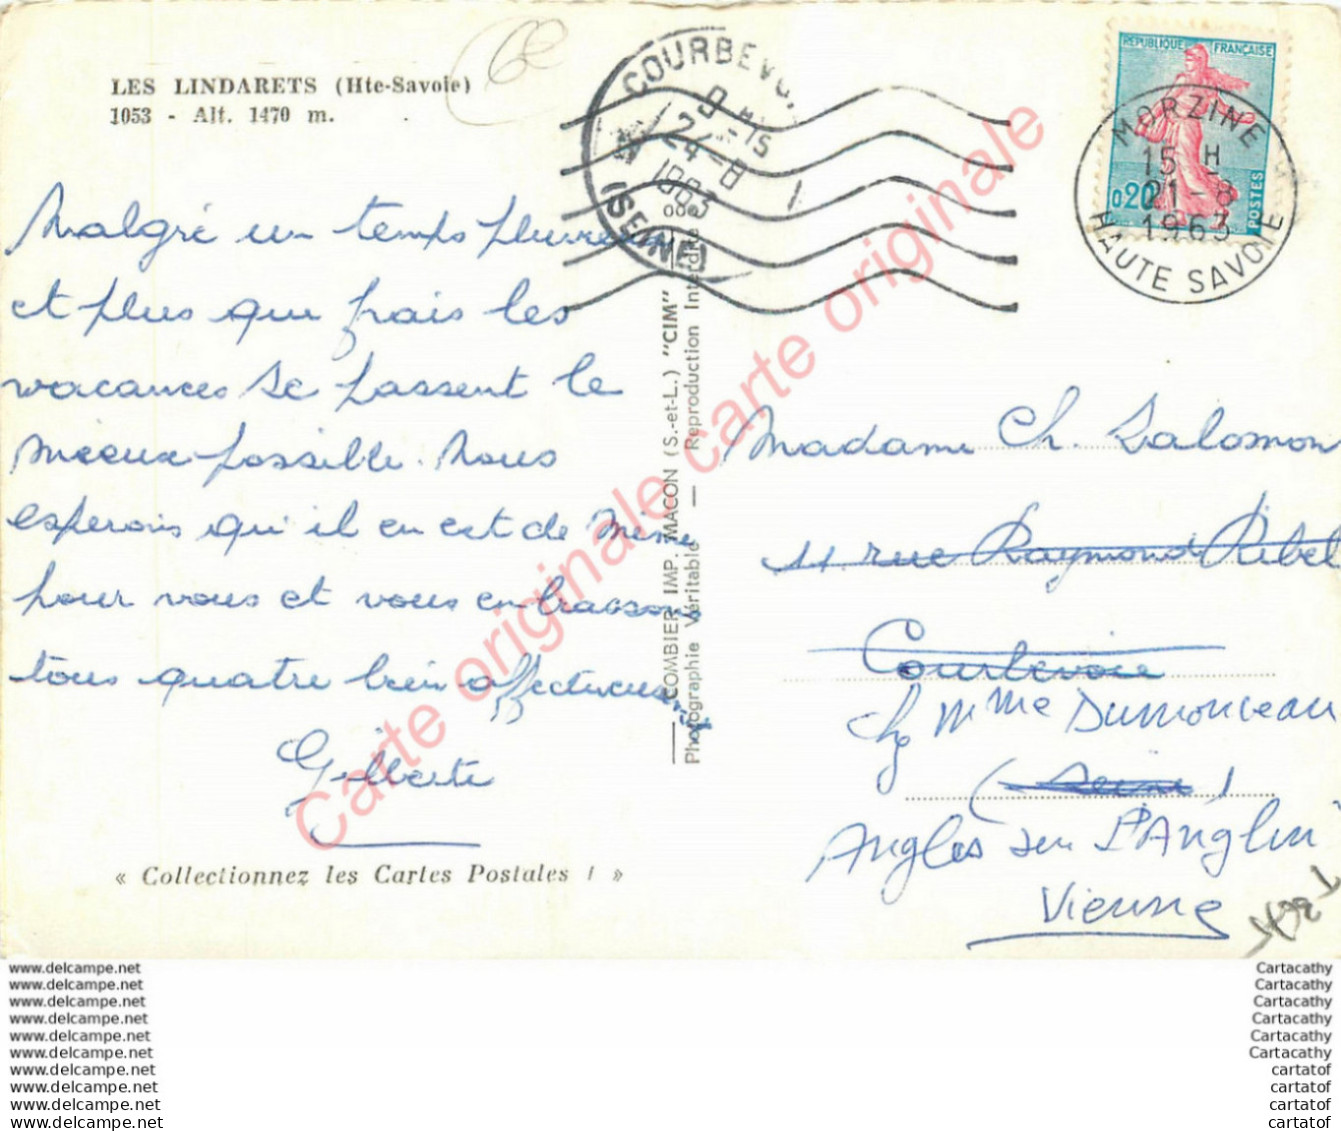 LES LINDARETS (Hte-Savoie)
1053 - Alt. 1470 m.
Malgré un temps pluvieux
et plus que frais les
vacances se passent le
mieux possible. Nous
esperons qu'il en est de même
pour vous et vous embrassons
tous quatre bien affectueusement
Gilberte
« Collectionnez les Cartes Postales ! »
COURBEVO
9 H 15
24-8
1963
(SEINE)
COMBIER IMP. MACON (S.-et-L.) "CIM"
Photographie Véritable — Reproduction Interdite
REPUBLIQUE FRANÇAISE
0,20
POSTES
MORZINE
15 H
21-8
1963
HAUTE SAVOIE
Madame Ch. Salomon
11 rue Raymond Ribel
Courbevoie
Chez Mme Dumonceau
(Seine)
Angles sur l'Anglin
Vienne
Carte originale carte originale
www.delcampe.net
www.delcampe.net
www.delcampe.net
www.delcampe.net
www.delcampe.net
www.delcampe.net
www.delcampe.net
www.delcampe.net
www.delcampe.net
www.delcampe.net
Cartacathy
Cartacathy
Cartacathy
Cartacathy
Cartacathy
Cartacathy
cartatof
cartatof
cartatof
cartatof